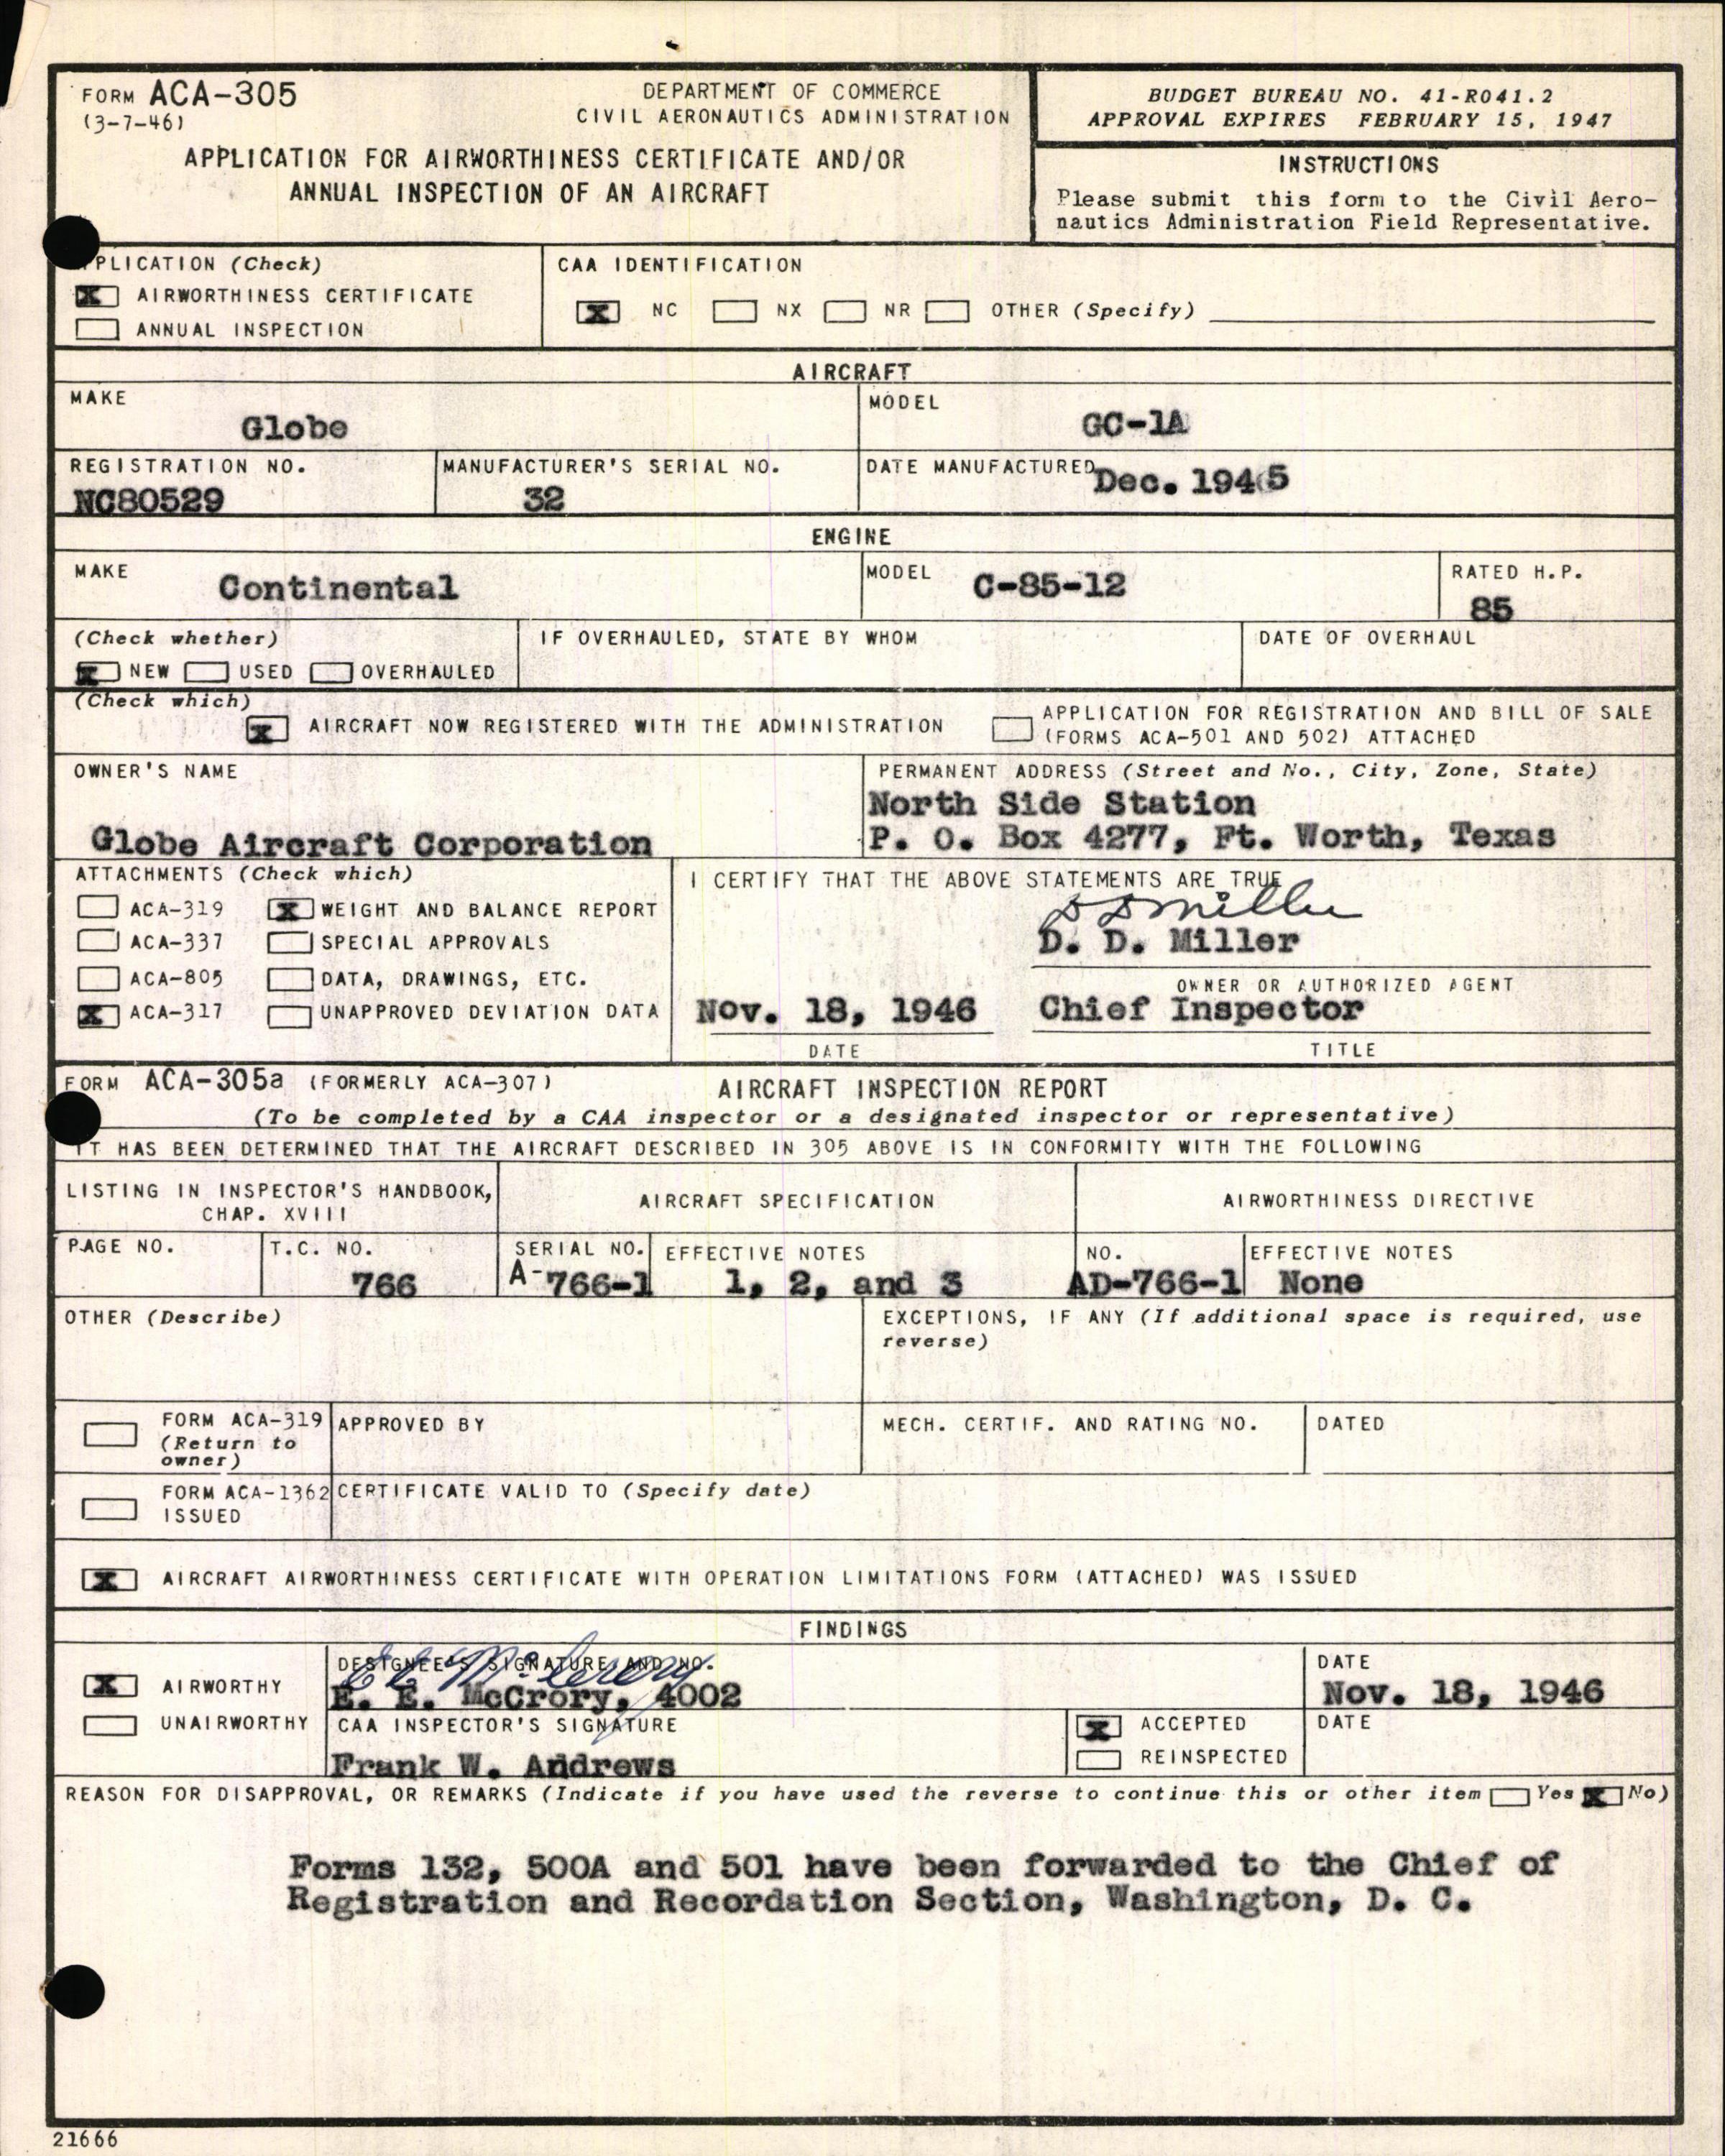 FORM ACA-305
(3-7-46)
DEPARTMENT OF COMMERCE
CIVIL AERONAUTICS ADMINISTRATION
APPLICATION FOR AIRWORTHINESS CERTIFICATE AND/OR
ANNUAL INSPECTION OF AN AIRCRAFT
BUDGET BUREAU NO. 41-R041.2
APPROVAL EXPIRES FEBRUARY 15, 1947
INSTRUCTIONS
Please submit this form to the Civil Aero-
nautics Administration Field Representative.
PLICATION (Check)
X AIRWORTHINESS CERTIFICATE
ANNUAL INSPECTION
CAA IDENTIFICATION
X NC NX NR OTHER (Specify)
AIRCRAFT
MAKE
Globe
MODEL
GC-1A
REGISTRATION NO.
NC80529
MANUFACTURER'S SERIAL NO.
32
DATE MANUFACTURED
Dec. 1945
ENGINE
MAKE
Continental
MODEL C-85-12
RATED H.P.
85
(Check whether)
X NEW USED OVERHAULED
IF OVERHAULED, STATE BY WHOM
DATE OF OVERHAUL
(Check which)
X AIRCRAFT NOW REGISTERED WITH THE ADMINISTRATION
APPLICATION FOR REGISTRATION AND BILL OF SALE
(FORMS ACA-501 AND 502) ATTACHED
OWNER'S NAME
Globe Aircraft Corporation
PERMANENT ADDRESS (Street and No., City, Zone, State)
North Side Station
P. O. Box 4277, Ft. Worth, Texas
ATTACHMENTS (Check which)
ACA-319 X WEIGHT AND BALANCE REPORT
ACA-337 SPECIAL APPROVALS
ACA-805 DATA, DRAWINGS, ETC.
X ACA-317 UNAPPROVED DEVIATION DATA
I CERTIFY THAT THE ABOVE STATEMENTS ARE TRUE
D D Miller
D. D. Miller
OWNER OR AUTHORIZED AGENT
Nov. 18, 1946 Chief Inspector
DATE TITLE
FORM ACA-305a (FORMERLY ACA-307) AIRCRAFT INSPECTION REPORT
(To be completed by a CAA inspector or a designated inspector or representative)
IT HAS BEEN DETERMINED THAT THE AIRCRAFT DESCRIBED IN 305 ABOVE IS IN CONFORMITY WITH THE FOLLOWING
LISTING IN INSPECTOR'S HANDBOOK,
CHAP. XVIII
AIRCRAFT SPECIFICATION
AIRWORTHINESS DIRECTIVE
PAGE NO.
T.C. NO.
766
SERIAL NO.
A-766-1
EFFECTIVE NOTES
1, 2, and 3
NO.
AD-766-1
EFFECTIVE NOTES
None
OTHER (Describe)
EXCEPTIONS, IF ANY (If additional space is required, use
reverse)
FORM ACA-319
(Return to
owner)
APPROVED BY
MECH. CERTIF. AND RATING NO.
DATED
FORM ACA-1362
ISSUED
CERTIFICATE VALID TO (Specify date)
X AIRCRAFT AIRWORTHINESS CERTIFICATE WITH OPERATION LIMITATIONS FORM (ATTACHED) WAS ISSUED
FINDINGS
X AIRWORTHY
UNAIRWORTHY
DESIGNEE'S SIGNATURE AND NO.
E E McCrory
E. E. McCrory, 4002
DATE
Nov. 18, 1946
CAA INSPECTOR'S SIGNATURE
Frank W. Andrews
X ACCEPTED
REINSPECTED
DATE
REASON FOR DISAPPROVAL, OR REMARKS (Indicate if you have used the reverse to continue this or other item Yes X No)
Forms 132, 500A and 501 have been forwarded to the Chief of
Registration and Recordation Section, Washington, D. C.
21666